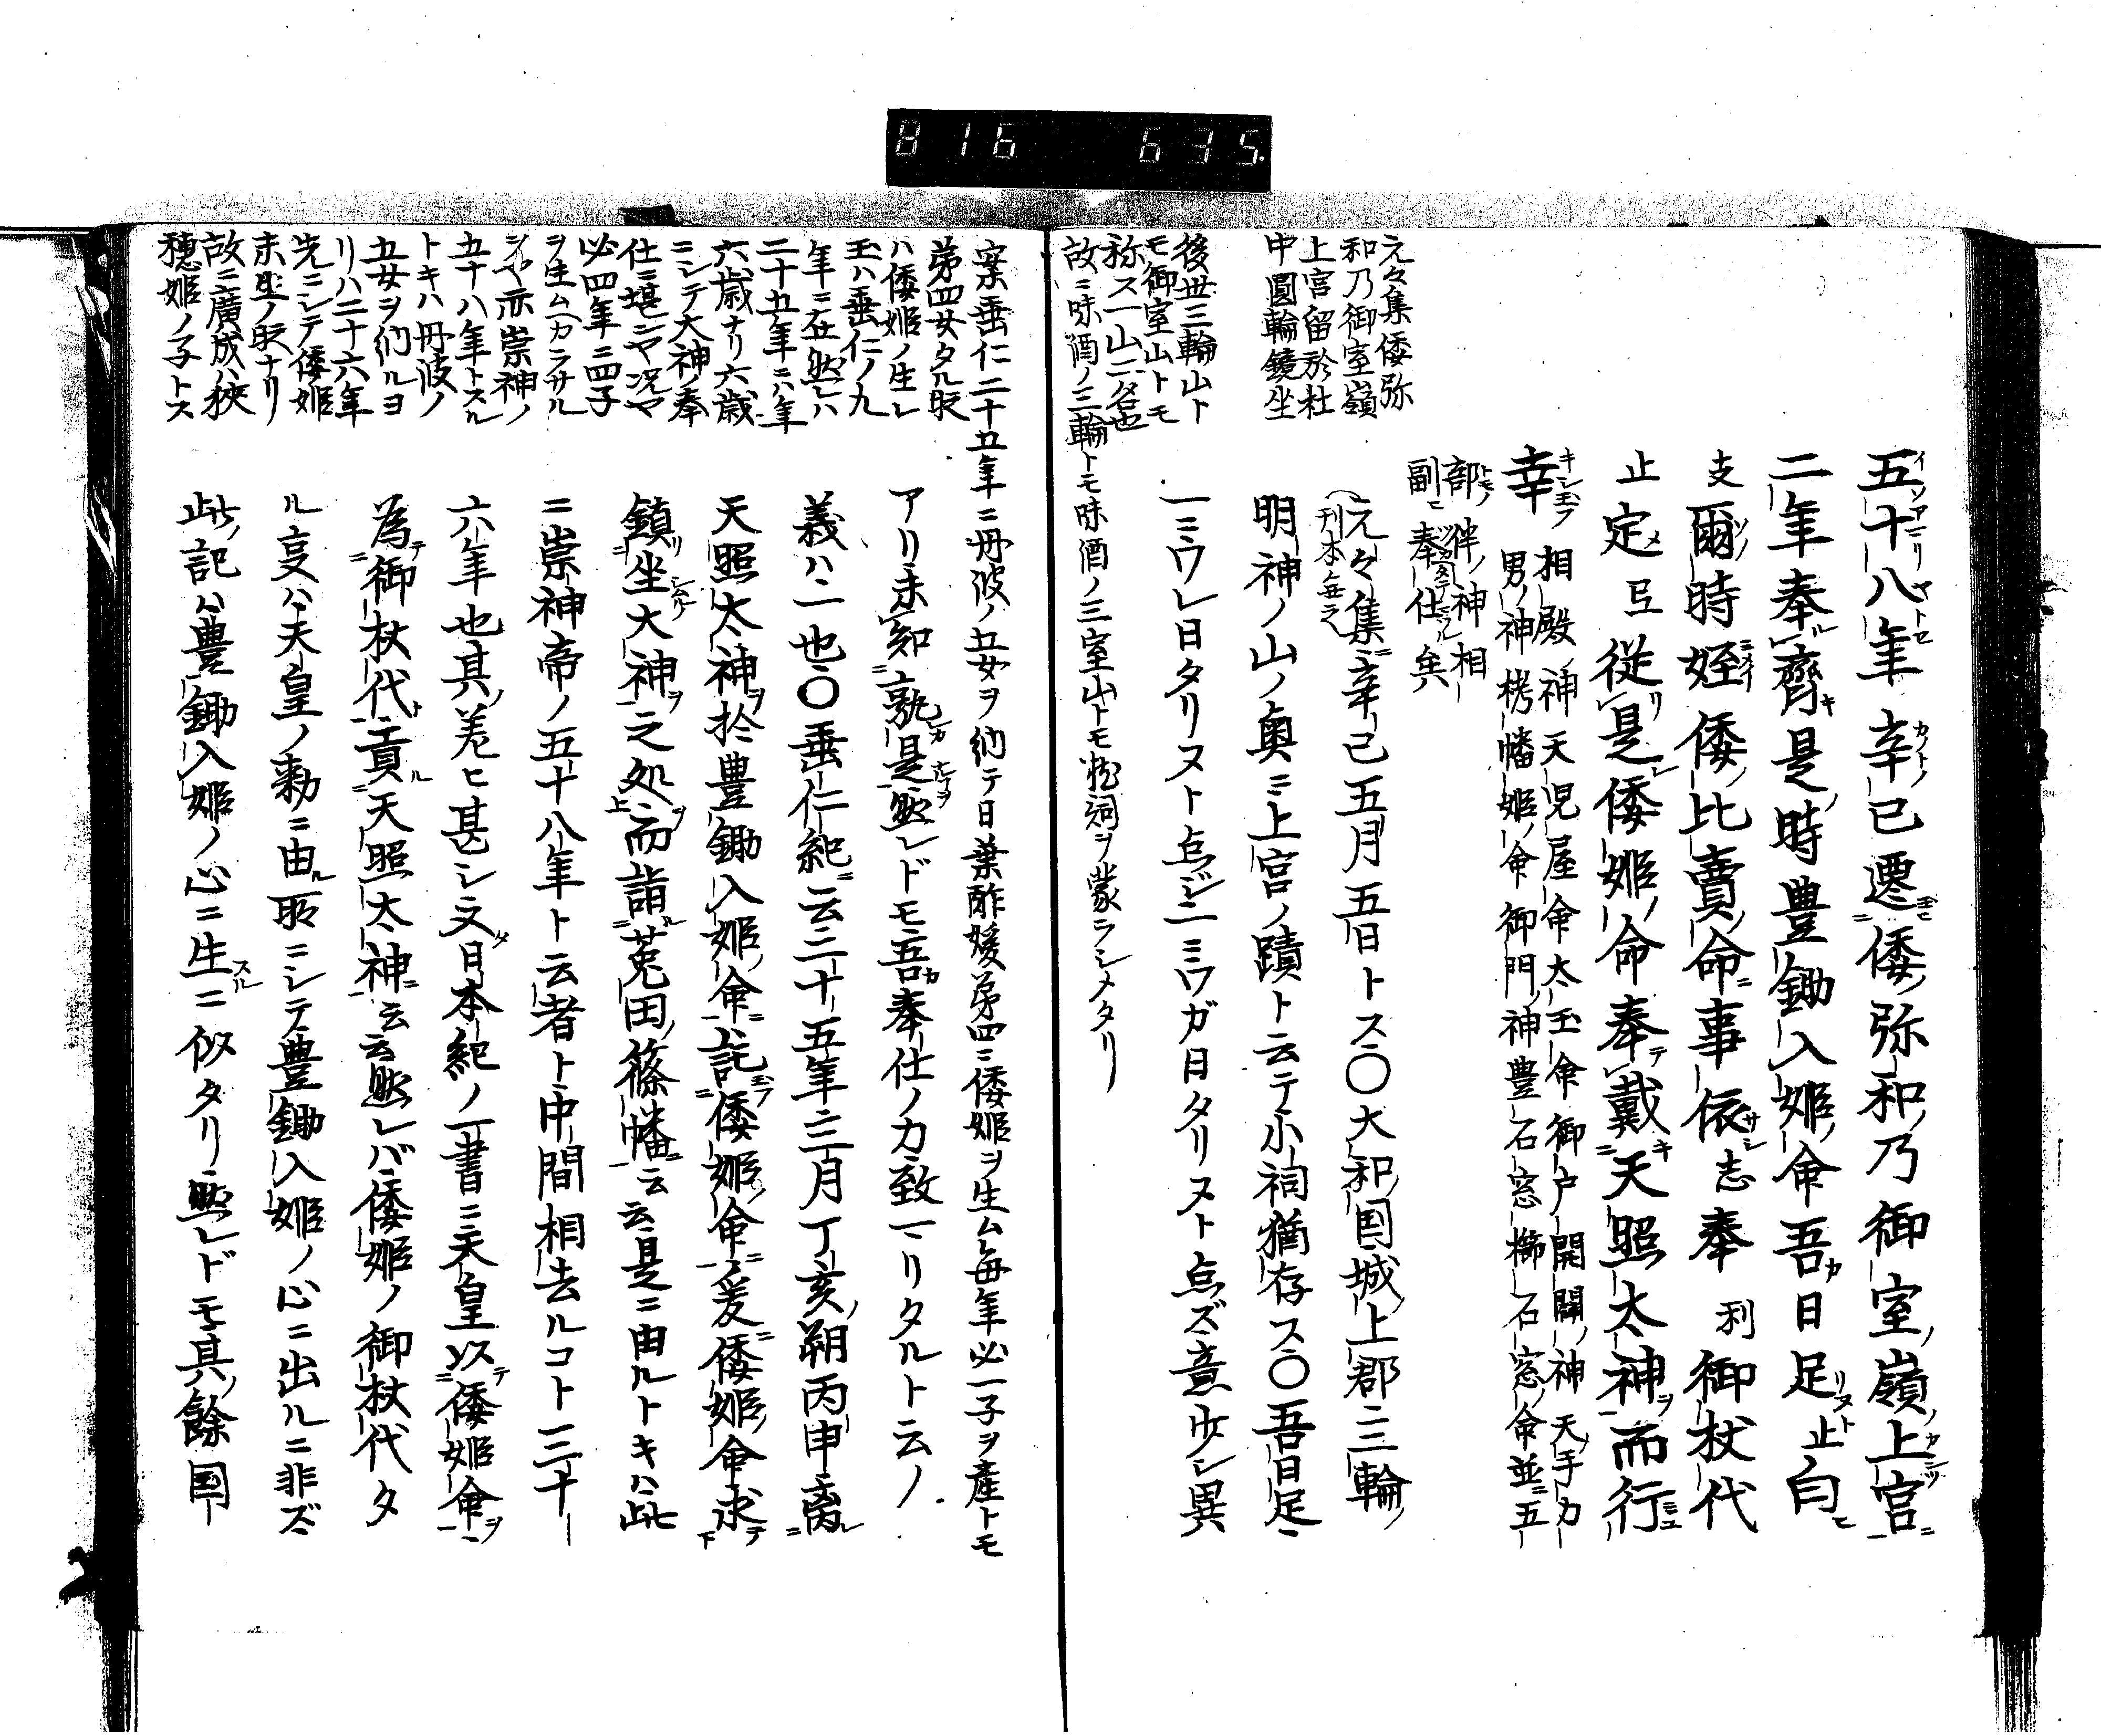 816 635.
五十八年辛巳遷倭弥和乃御室嶺上宮
二年奉齋是時豊鋤入姫命吾日足止白
支爾時姪倭比賣命事依志奉利御杖代
止定弖従是倭姫命奉戴天照太神而行
幸
相殿神天児屋命太玉命御戸開闢神天手力
男神栲幡姫命御門神豊石窓櫛石窓命並五
部伴神相
副奉仕矣
元々集辛巳五月五日トス〇大和国城上郡三輪
刊本無之
明神ノ山ノ奥ニ上宮ノ蹟ト云テ小祠猶存ス〇吾日足
一ミワレ日タリヌト点ジ一ミワガ日タリヌト点ズ意少シ異
元々集倭弥
和乃御室嶺
上宮留於杜
中圓輪鏡坐
後世三輪山ト
モ御室山トモ
称ス一山二名也
故ニ味酒ノ三輪トモ味酒ノ三室山トモ枕詞ヲ蒙ラシメタリ
案垂仁二十五年ニ丹波ノ五女ヲ納テ日葉酢媛第四ニ倭姫ヲ生ム毎年必一子ヲ産トモ
アリ未知孰是然レドモ吾奉仕ノ力致一リタルト云ノ
義ハ一也〇垂仁紀云二十五年三月丁亥朔丙申离
天照太神於豊鋤入姫命託倭姫命爰倭姫命求
鎮坐大神之処而詣菟田篠幡云云是ニ由ルトキハ此
ニ崇神帝ノ五十八年ト云者ト中間相去ルコト三十
六年也其差ヒ甚シ又日本紀ノ一書ニ天皇以倭姫命
為御杖代貢天照太神云云然レバ倭姫ノ御杖代タ
ル叓ハ天皇ノ勅ニ由ル所ニシテ豊鋤入姫ノ心ニ出ルニ非ズ
此記ハ豊鋤入姫ノ心ニ生ニ似タリ然レドモ其餘国
第四女タル時
ハ倭姫ノ生レ
玉ハ垂仁ノ九
年ニ在然レハ
二十五年ニハ年
六歳ナリ六歳
ニシテ大神ノ奉
仕ニ堪ンヤ况ヤ
必四年ニ四子
ヲ生ムヘカラサル
シヤ亦崇神ノ
五十八年トスル
トキハ丹波ノ
五女ヲ納ルヨ
リハ二十六年
先ニシテ倭姫
未生ノ時ナリ
故ニ廣成ハ狹
穂姫ノ子トス